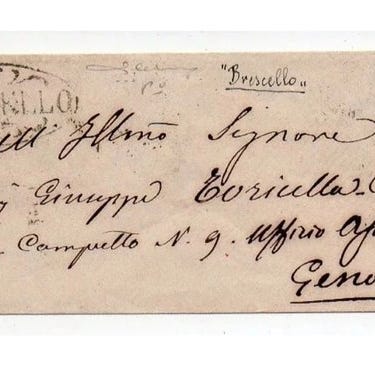 "Brescello"
ELLO
Illmõ Signore
Giuseppe Toricella
Campetto N. 9. Uffizio
Geno